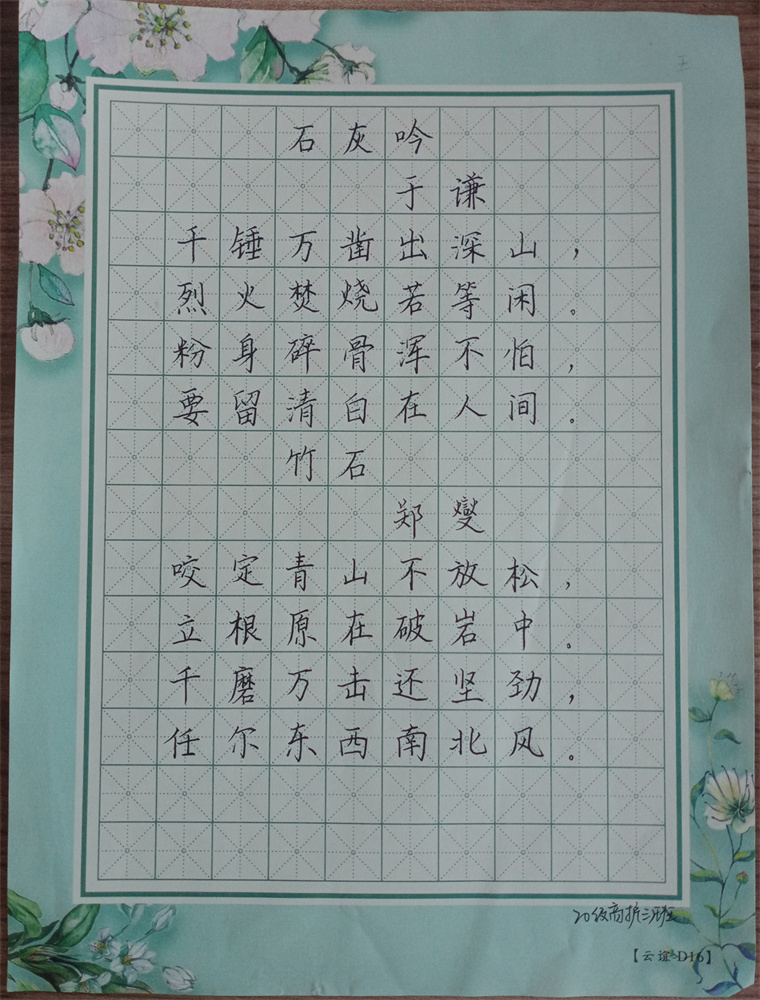 石灰吟
于谦
千锤万凿出深山，
烈火焚烧若等闲。
粉身碎骨浑不怕，
要留清白在人间。
竹石
郑燮
咬定青山不放松，
立根原在破岩中。
千磨万击还坚劲，
任尔东西南北风。
20级高护三班
【云谊·D16】